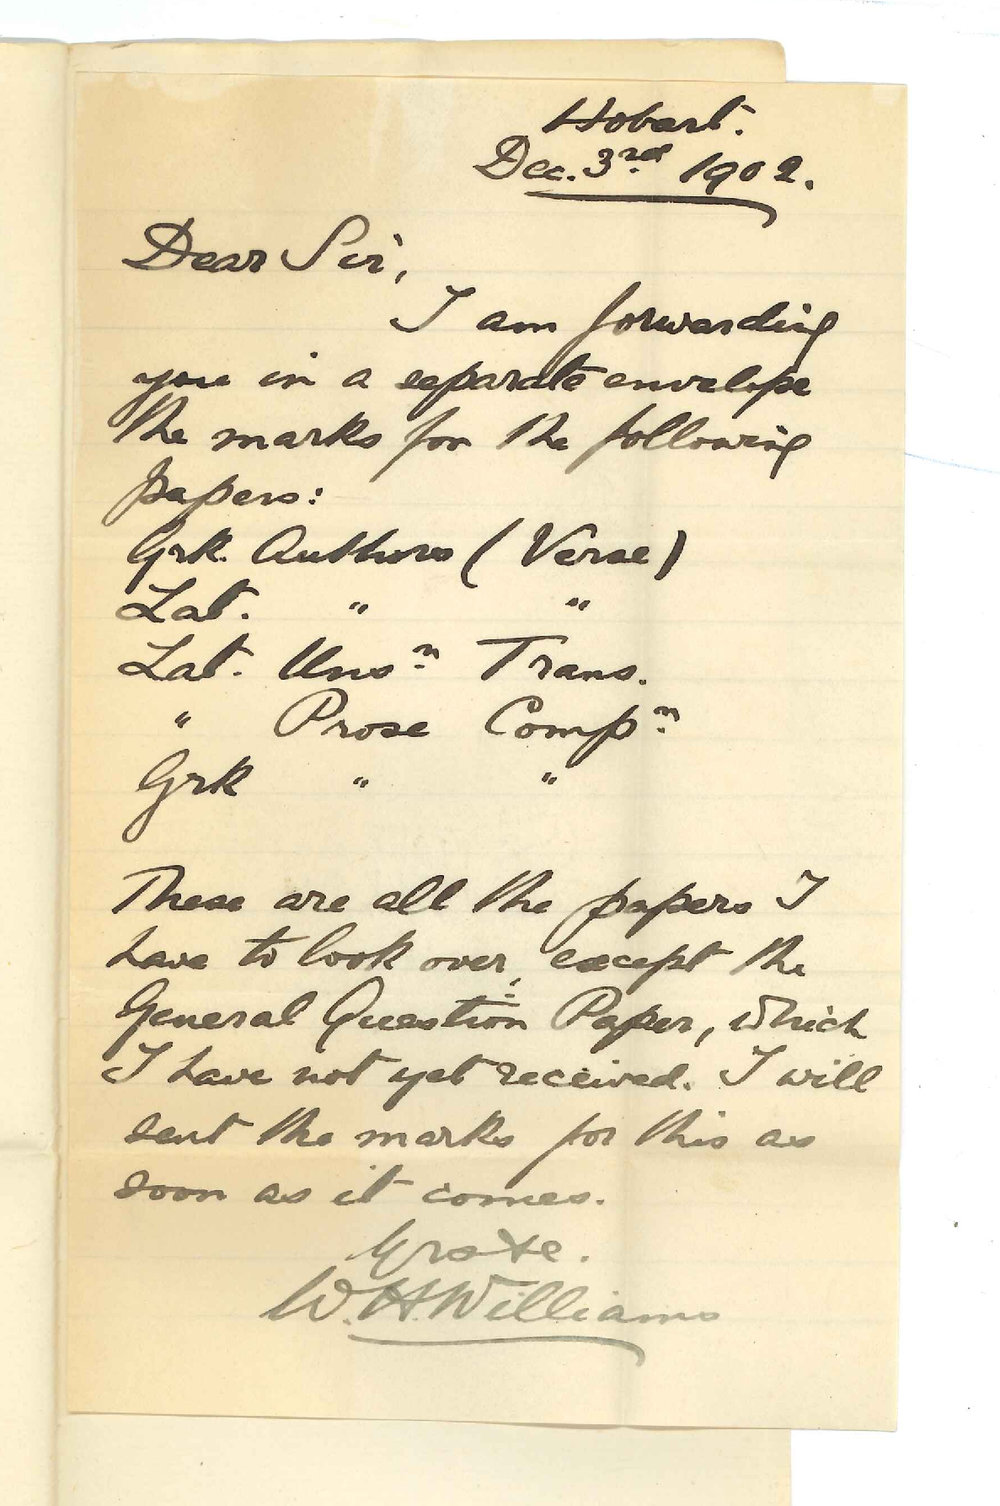 Hobart.
Dec. 3rd 1902.
Dear Sir,
I am forwarding
you in a separate envelope
the marks for the following
papers:
Grk. Authors (Verse)
Lat. " "
Lat. Unsn Trans.
" Prose Compn
Grk " "
These are all the papers I
have to look over, except the
General Question Paper, which
I have not yet received. I will
sent the marks for this as
soon as it comes.
W. H. Williams